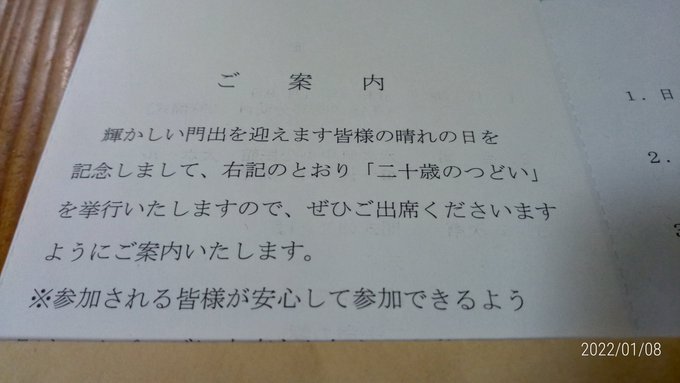 ご 案 内
輝かしい門出を迎えます皆様の晴れの日を
記念しまして、右記のとおり「二十歳のつどい」
を挙行いたしますので、ぜひご出席くださいます
ようにご案内いたします。
※参加される皆様が安心して参加できるよう
1. 日
2.
2022/01/08